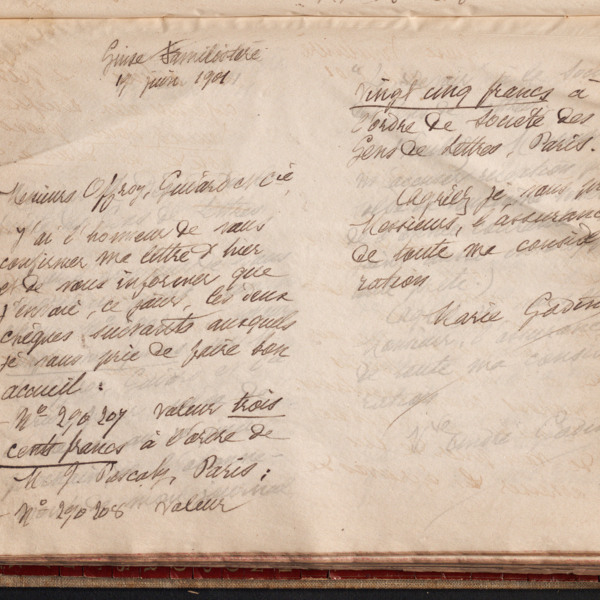 Guise Familistère
19 juin 1901
Messieurs Offroy, Guiard et Cie,
J'ai l'honneur de vous
confirmer ma lettre d'hier
et de vous informer que
j'envoie, ce jour, les deux
chèques suivants auxquels
je vous prie de faire bon
accueil :
- No 290 207 valeur trois
cents francs à l'ordre de
Paris ;
- No 290 208 valeur
vingt cinq francs à
l'ordre de Société des
Gens de lettres, Paris.
Agréez je vous
Messieurs, l'assurance
de toute ma considé
ration
Marie Godin